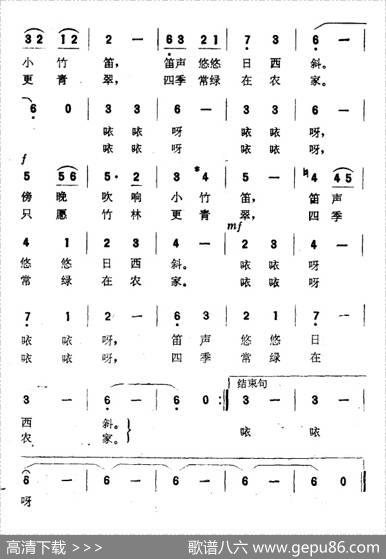 3 2 1 2 | 2 — | 6 3 2 3 2 1 | 7 3 | 6 — |
小 竹 笛， 笛声 悠悠 日 西 斜。
更 青 翠， 四季 常绿 在 农 家。
6 0 | 3 3 | 6 — | 3 3 | 6 — |
咴 咴 呀 咴 咴 呀，
咴 咴 呀 咴 咴 呀，
f
5 5 6 | 5· 2 | 3 #4 | 5 — | ♮4 4 5 |
傍 晚 吹 响 小 竹 笛， 笛 声
只 愿 竹 林 更 青 翠， 四 季
mf
4 1 | 2 3 | 4 — | 3 3 | 4 — |
悠 悠 日 西 斜。 咴 咴 呀
常 绿 在 农 家。 咴 咴 呀
7 1 | 2 — | 6 3 | 2 1 | 7 — |
咴 咴 呀， 笛 声 悠 悠 日
咴 咴 呀， 四 季 常 绿 在
结束句
3 — | 6 — | 6 0 :| 3 — | 3 — |
西 斜。
农 家。 咴 咴
6 — | 6 — | 6 — | 6 — | 6 0 ‖
呀
高清下载 >>> 歌谱八六 www.gepu86.com